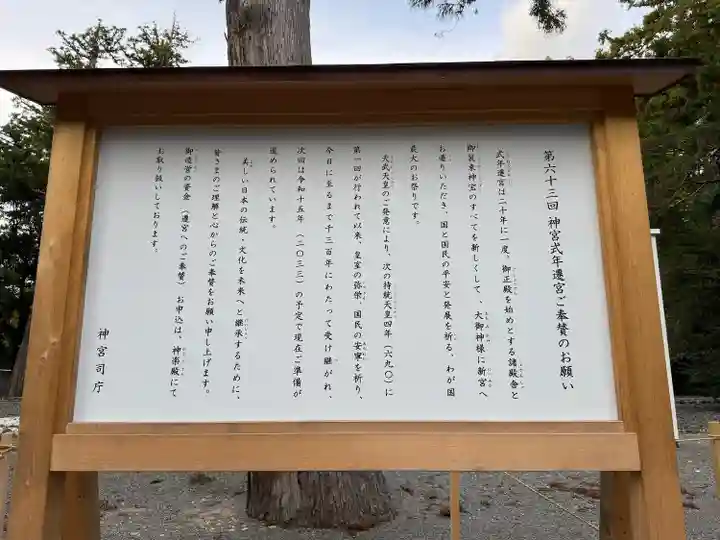 第六十三回 神宮式年遷宮ご奉賛のお願い
式年遷宮は二十年に一度、御正殿を始めとする諸殿舎と
御装束神宝のすべてを新しくして、大御神様に新宮へ
お遷りいただき、国と国民の平安と発展を祈る、わが国
最大のお祭りです。
天武天皇のご発意により、次の持統天皇四年（六九〇）に
第一回が行われて以来、皇室の弥栄、国民の安寧を祈り、
今日に至るまで千三百年にわたって受け継がれ、
次回は令和十五年（二〇三三）の予定で現在ご準備が
進められています。
美しい日本の伝統・文化を未来へと継承するために、
皆さまのご理解と心からのご奉賛をお願い申し上げます。
御造営の資金（遷宮へのご奉賛）お申込は、神楽殿にて
お取り扱いしております。
神宮司庁